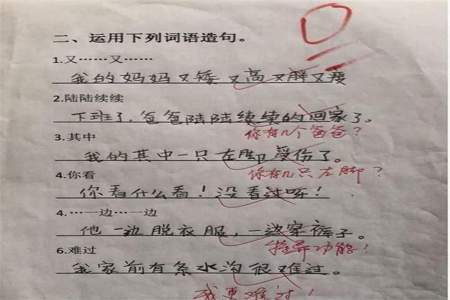 二、运用下列词语造句。
1.又……又……
我的妈妈又矮又高又胖又瘦
2.陆陆续续
下班了,爸爸陆陆续续的回家了。
3.其中
你有几个爸爸?
我的其中一只左脚受伤了。
4.你看
你有几只左脚?
你看什么看!没看过呀!
4.…一边…一边
他一边脱衣服,一边穿裤子。
6.难过
我家前有条水沟很难过。
我更难过!